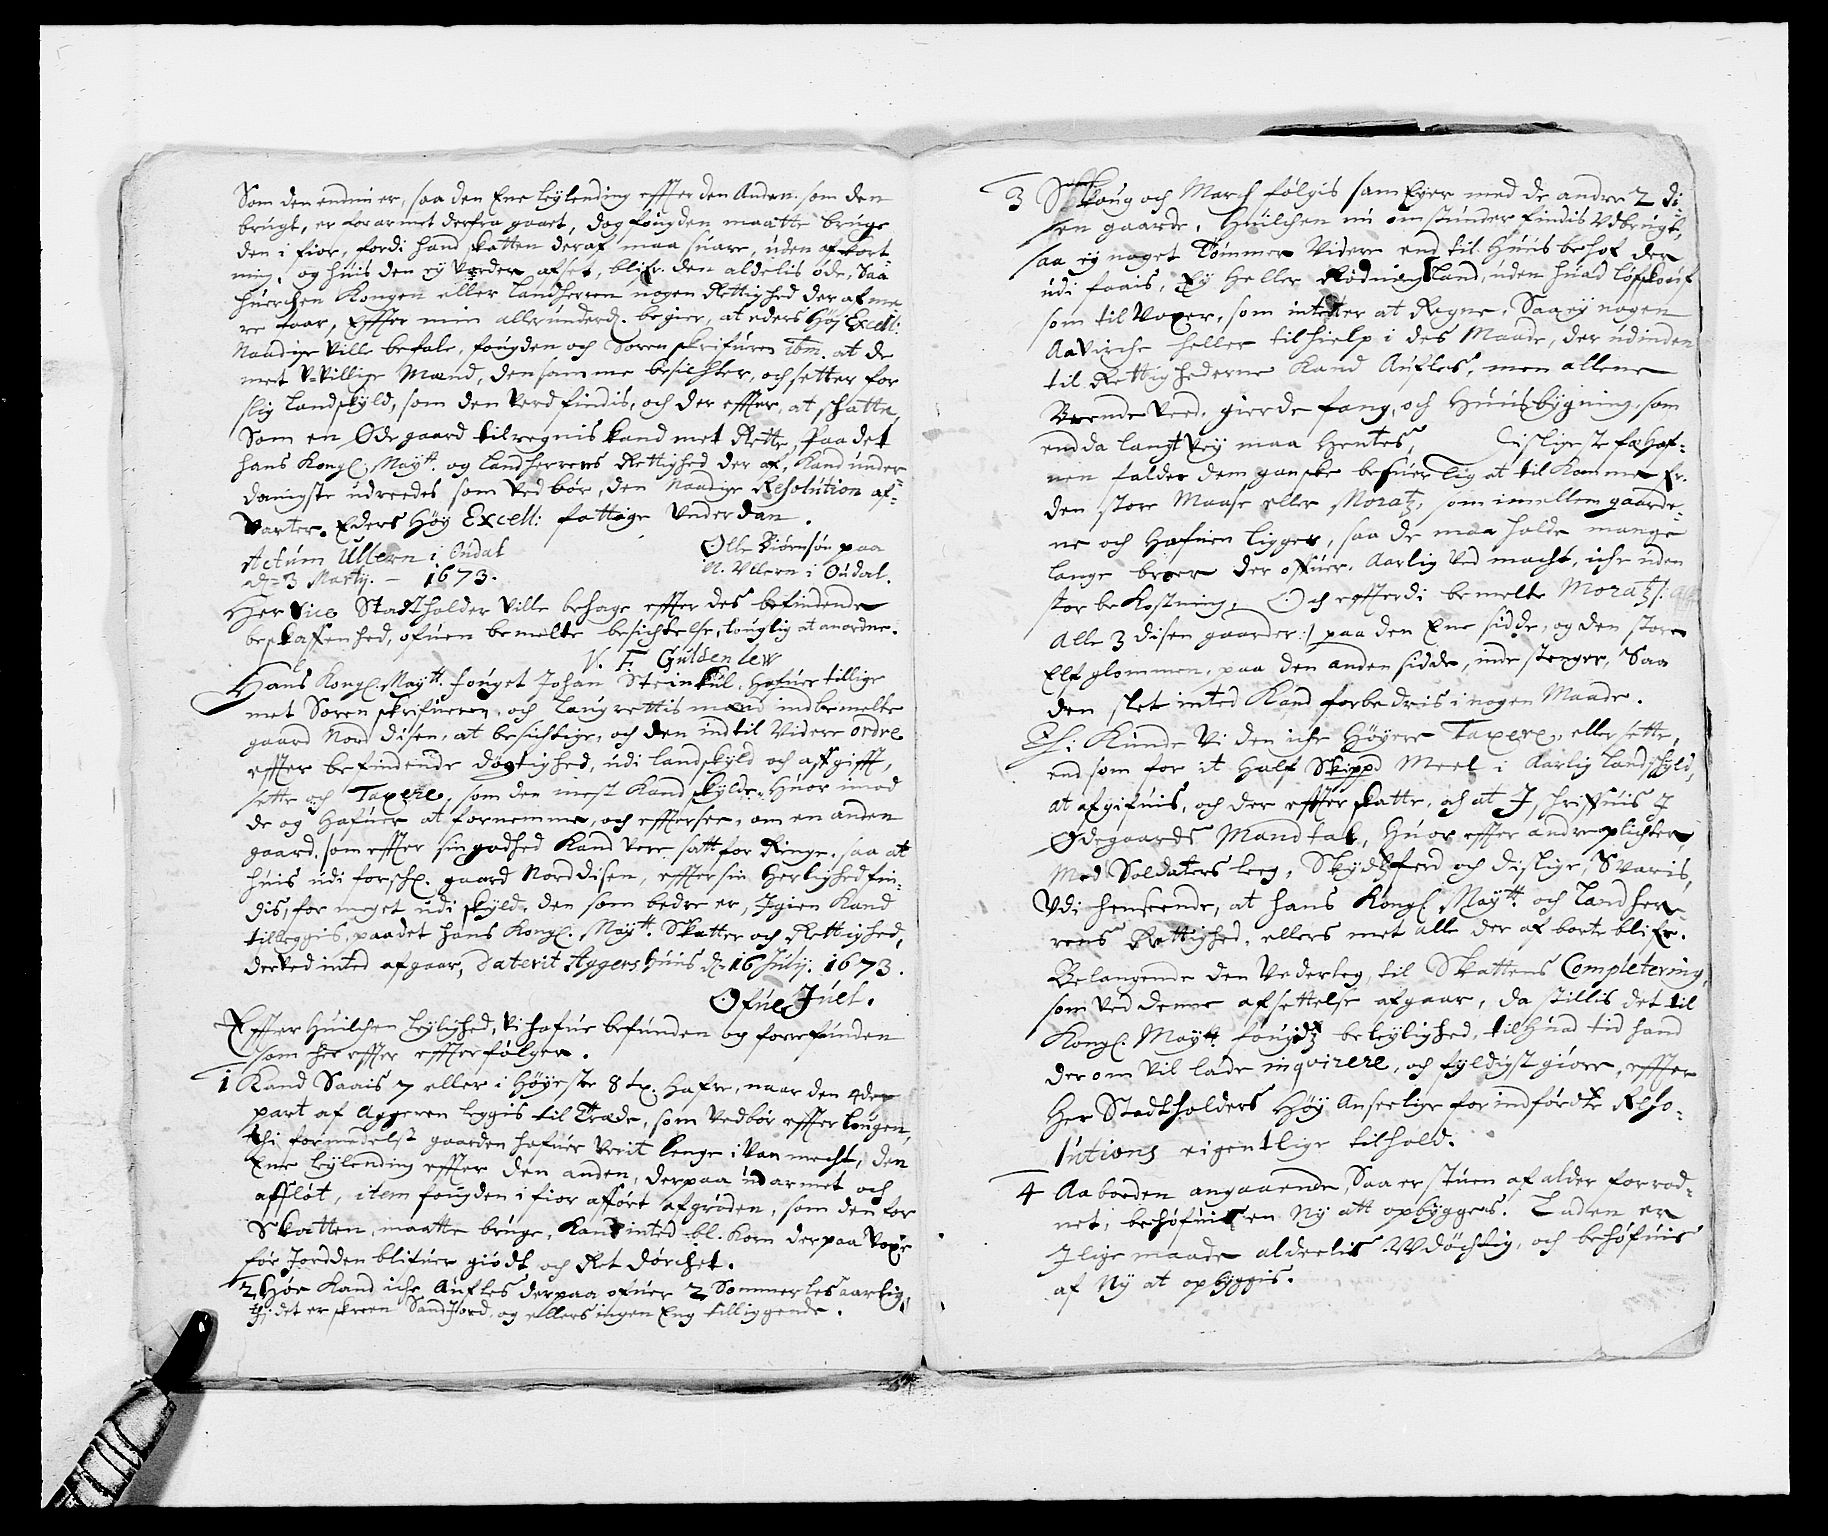 Som den endnu er, saa den Ene leÿlending effter den Anden. som den
brugt, er forarmet derfra gaaet, dog fougden maatte bruge
den i fior, fordi hand skatten deraf maa suare, uden afkort
ning, og huis den eÿ vorder afset, blifr. den aldelis øde, Saa
huerchen Kongen eller Landherren nogen Rettighed der af me
re faar, Effter min allerunderd. begier, at eders Høÿ Excell:
Naadige ville befale, fougden och Søren skrifuer Tbm. at de
met U-villige Mænd, den samme besichter, och setter for
slig landskÿld, som den verd findis, och der effter, at skatte,
Som en Øde gaard tilregnis kand met Rette, Paa det
hans Kongl. Maÿtt. og landherrens Rettighed der af, kand under
danigste udreedes som ved bør, den Naadige Resolution af-
varter. Eders Høÿ Excell: fattige Underdan.
Actum Ullern i Oudal
3 Martÿ. - 1673.
Olle Biørnsøn paa
N. Ullern i Oudal.
Her Vice Stadtholder ville behage effter des befindende
beskaffenhed, ofuen bemelte besichtelse, louglig at anordne.
V. F. Güldenlew
Hans Kongl. Maÿtt. fouget Johan Steinkul, hafuer tillige
met Søren skrifueren, och Laugrettis mænd indbemelte
gaard Nord Disen, at besichtige, och den indtil videre ordre
effter befindende døgtighed, udi landskÿld och affgifft,
sette och Taxere, som den mest kand skÿlde, Huor imod
de og hafuer at fornemme, och effterser, om en anden
gaard, som effter sin godhed kand vere satt for Ringe, saa at
huis udi forschr. gaard Nord disen, effter sin herlighed fin-
dis, for meget udi skÿld, den som bedre er, Igien kand
tilleggis, paa det hans Kongl. Maÿtt. Skatter och Rettighed,
derved inted afgaar, Daterit Aggers huus d. 16 Julÿ. 1673.
Ofue Juel.
Effter Huilchen leÿlighed, vi hafue befunden og forrefunden
som her effter effterfølger.
1 Kand Saais 7 eller i høÿeste 8 tr. hafre, naar den 4de
part af Aggeren leggis til Træde, som vedbør effter lougen,
thi formedelst gaarden hafuer verit lenge i van mecht, den
Ene leÿlending effter den anden, derpaa udarmet och
affløt, item fougden i fior afført afgrøden, som den for
Skatten, maatte bruge, kand inted bl. korn derpaa voxe
før Jordden blifuer giødt och Ret dørchet.
2 Høe kand iche aufles derpaa ofuer 2 Sommerles aarlig,
thj det er skreen Sand Jord, og ellers ingen Eng tilliggende.
3 Skoug och March følgis sam Eyer med de andre 2 di
sen gaarde, Huilchen nu om stunder findis Udbrugt,
saa eÿ noget Tømmer videre end til Huus behof der
udi faais, Eÿ heller Rødning Land, uden huad løffskouf
som til voxer, som intet er at Regne, Saa eÿ nogen
Aavirche heller tilhielp i des Maade, der udinden
til Rettighederne kand Aufles, men allene
Brende veed, gierde fang, och Huusbÿgning, som
endda langt vej maa hentes, Disligeste fæhaf-
nen falder dem ganske besuerlig at til komme fr.
den store Maase eller Moratz, som imellem gaarde-
ne och hafnen ligger, saa de maa holde mange
lange broer der offuer, Aarlig ved macht, iche uden
stor bekostning, Och effterdi bemelte Moratz /:
Alle 3 disen gaarder :/ paa den Ene sidde, og den store
Elf glommen, paa den anden sidde, inde stenger, Saa
den slet inted kand forbedris i nogen Maade.
Thi kunde vi den iche høÿere Taxere, eller sette,
end som for it half Skippd Meel i Aarlig Landskÿld,
at afgifuis, och der effter skatte, och at I, hriffuis I
Ødegaards Mandtal, huor effter andre plichter
Med Soldaters leg, Skÿdtzferd och dislige, Svaris,
Udi henseende, at hans Kongl. Maÿtt. och Landher-
rens Rettighed, ellers met alle der af borte blifr.
Belangende den Vederleg, til Skattens Completering,
som ved denne afsettelse afgaar, da stillis det til
Kongl. Maÿtt. fougdtz beleÿlighed, til huad tid hand
der om vil lade inqvirere, och fÿldigst giøre, effter
Her Stadtholders Høÿ Anseelige for indførdte Reso-
lutions eigentlige tilhold.
4 Aaboeden angaaende, Saa er stuen af alder forrod-
net, behøfuis en Nÿ att opbÿgges. Laden er
I lige maade aldeelis Udøchtig, och behøfuis
af Nÿ at opbÿggis.